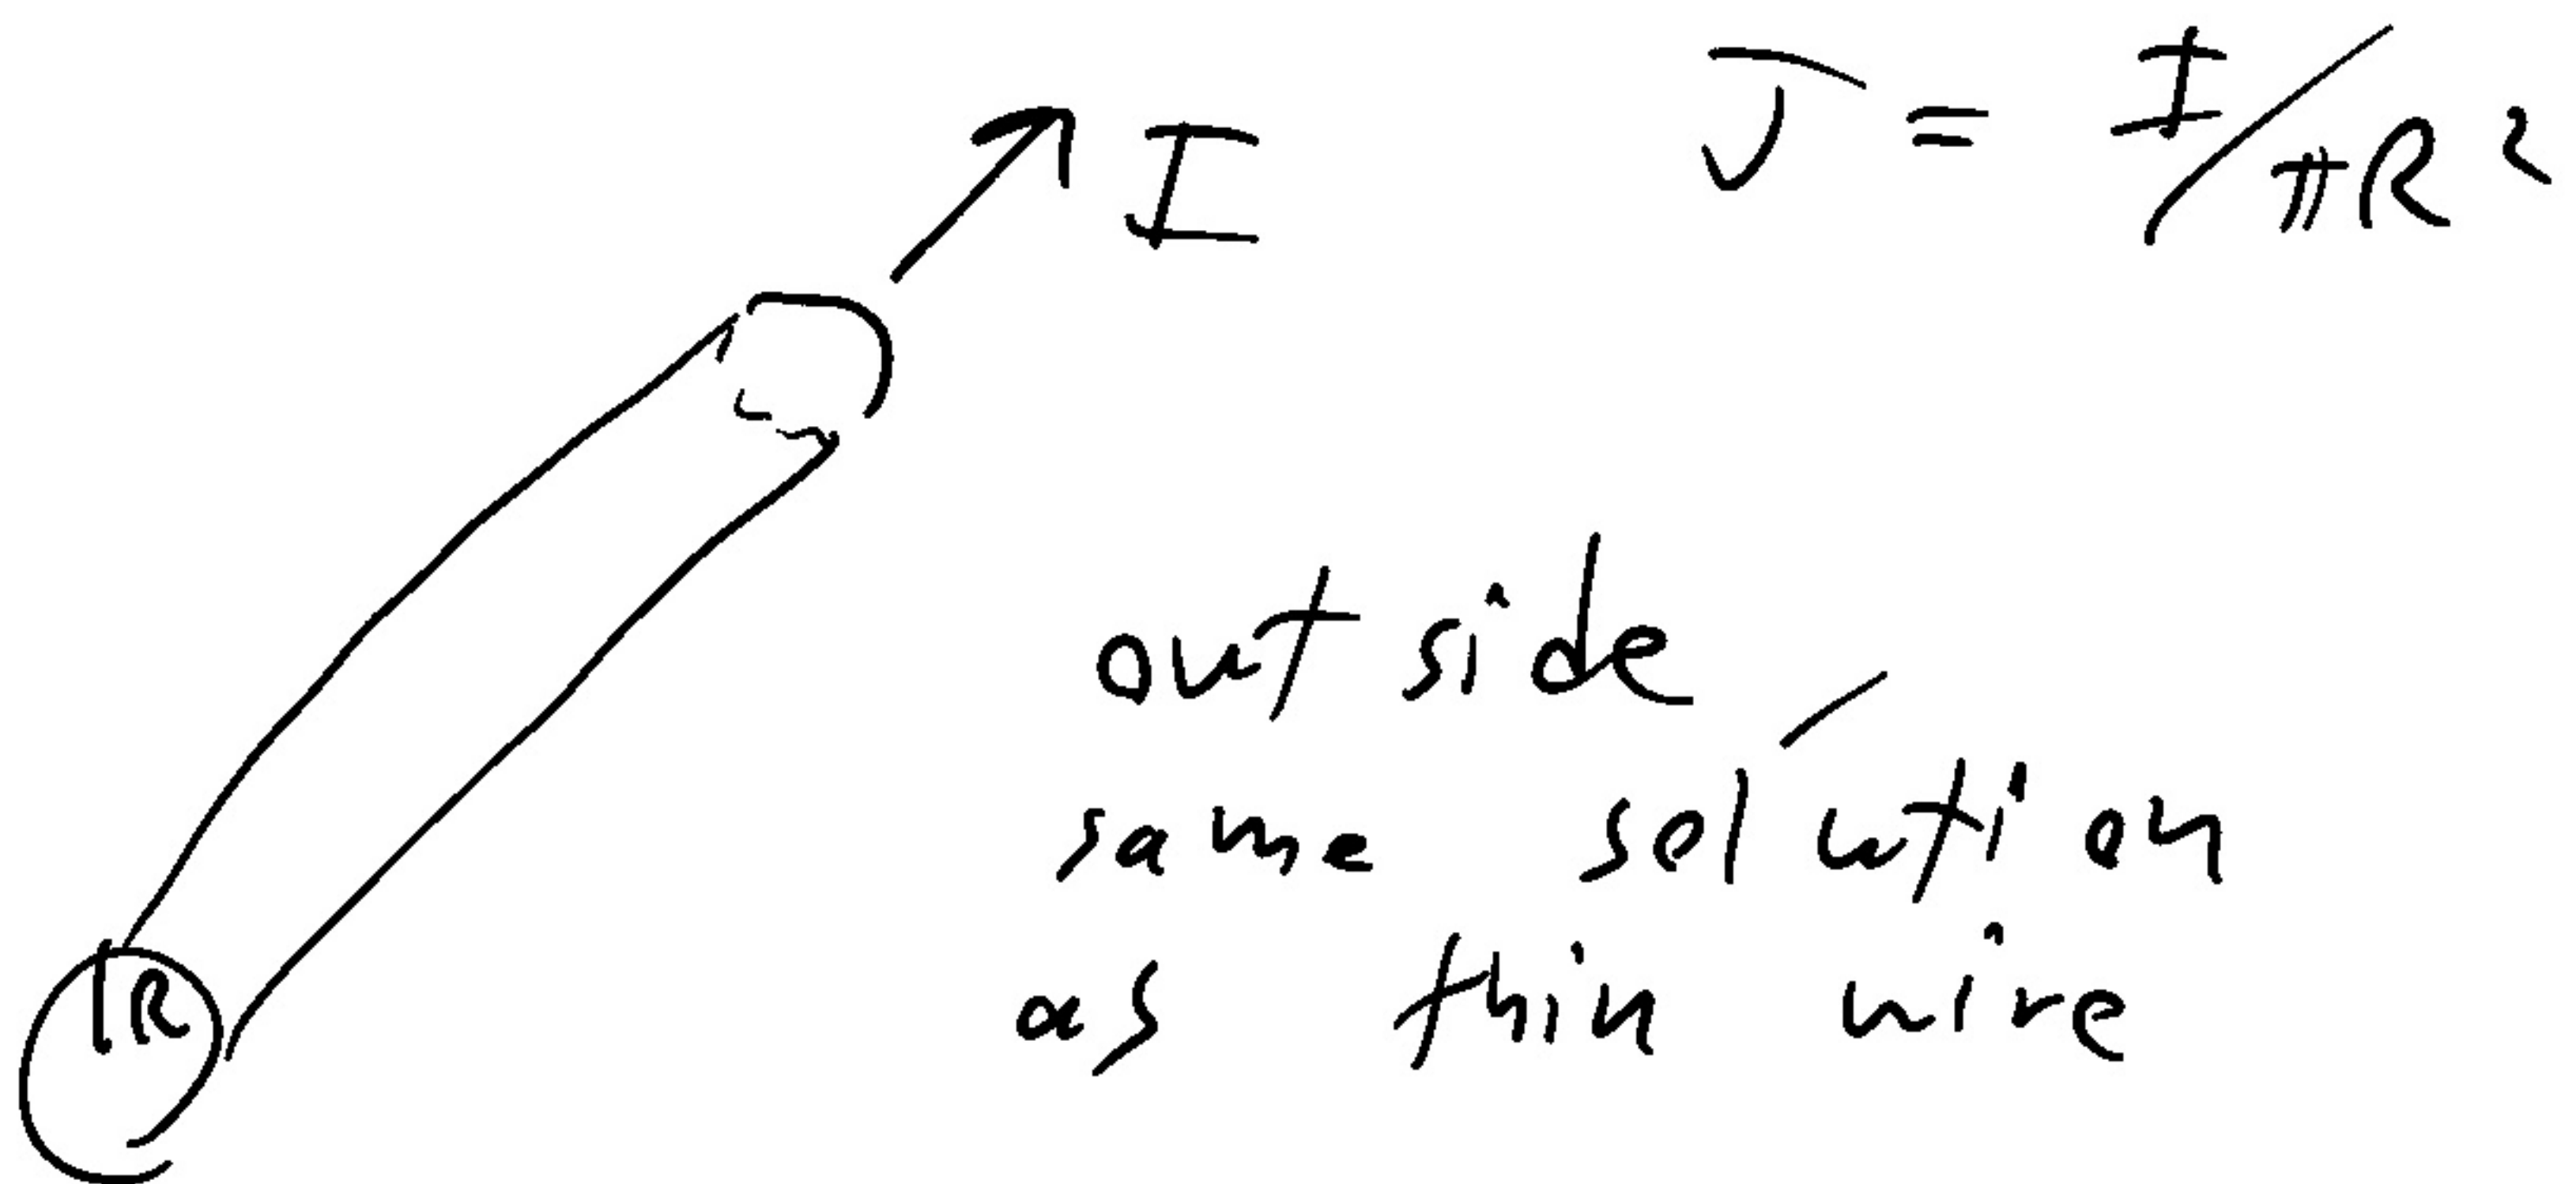 I
J = I/πR²
R
outside,
same solution
as thin wire